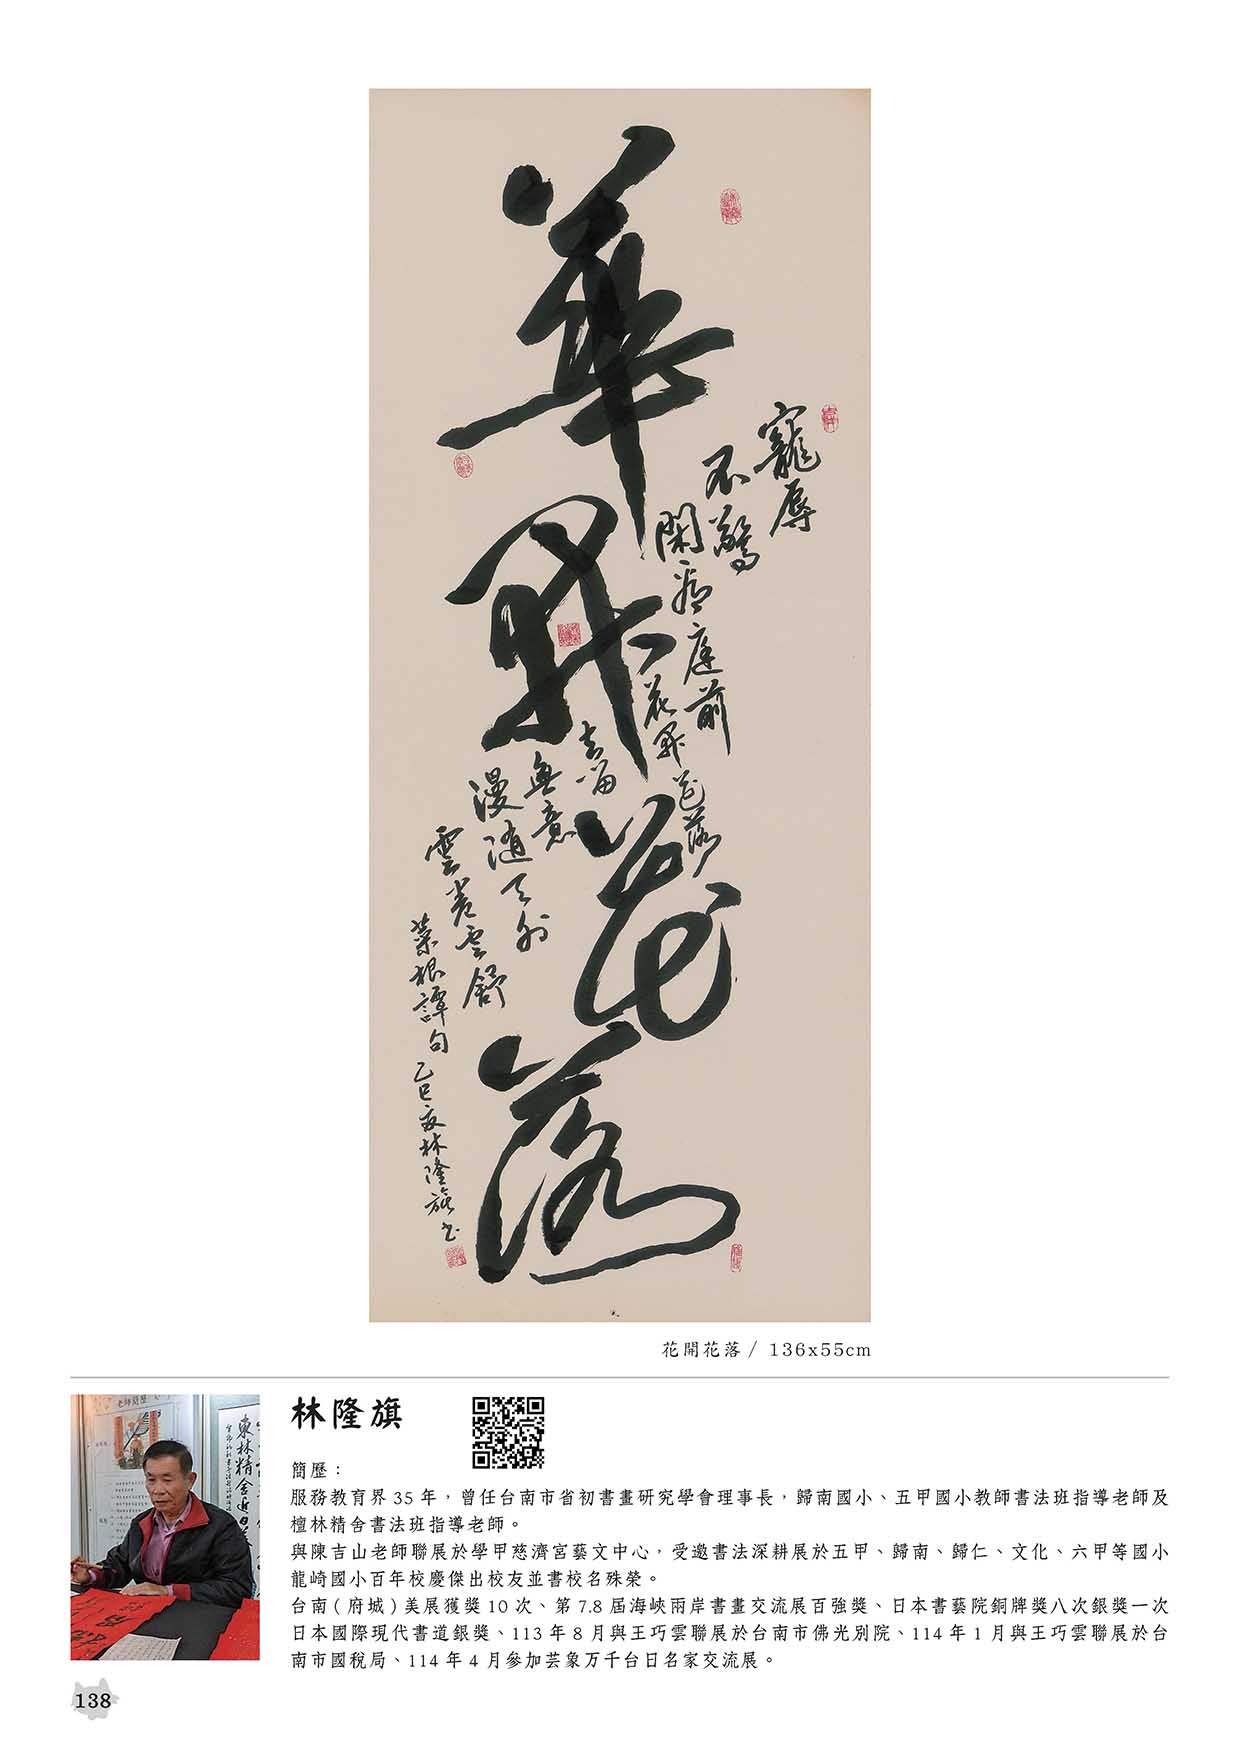 華開花落
寵辱
不驚
閑看庭前
花開花落
去留
無意
漫隨天外
雲卷雲舒
菜根譚句 乙巳夏林隆旗书
花開花落 / 136x55cm
林隆旗
簡歷：
服務教育界 35 年，曾任台南市省初書畫研究學會理事長，歸南國小、五甲國小教師書法班指導老師及
檀林精舍書法班指導老師。
與陳吉山老師聯展於學甲慈濟宮藝文中心，受邀書法深耕展於五甲、歸南、歸仁、文化、六甲等國小
龍崎國小百年校慶傑出校友並書校名殊榮。
台南(府城)美展獲獎 10 次、第 7.8 屆海峽兩岸書畫交流展百強獎、日本書藝院銅牌獎八次銀獎一次
日本國際現代書道銀獎、113 年 8 月與王巧雲聯展於台南市佛光別院、114 年 1 月與王巧雲聯展於台
南市國稅局、114 年 4 月參加芸象万千台日名家交流展。
東林精舍
138